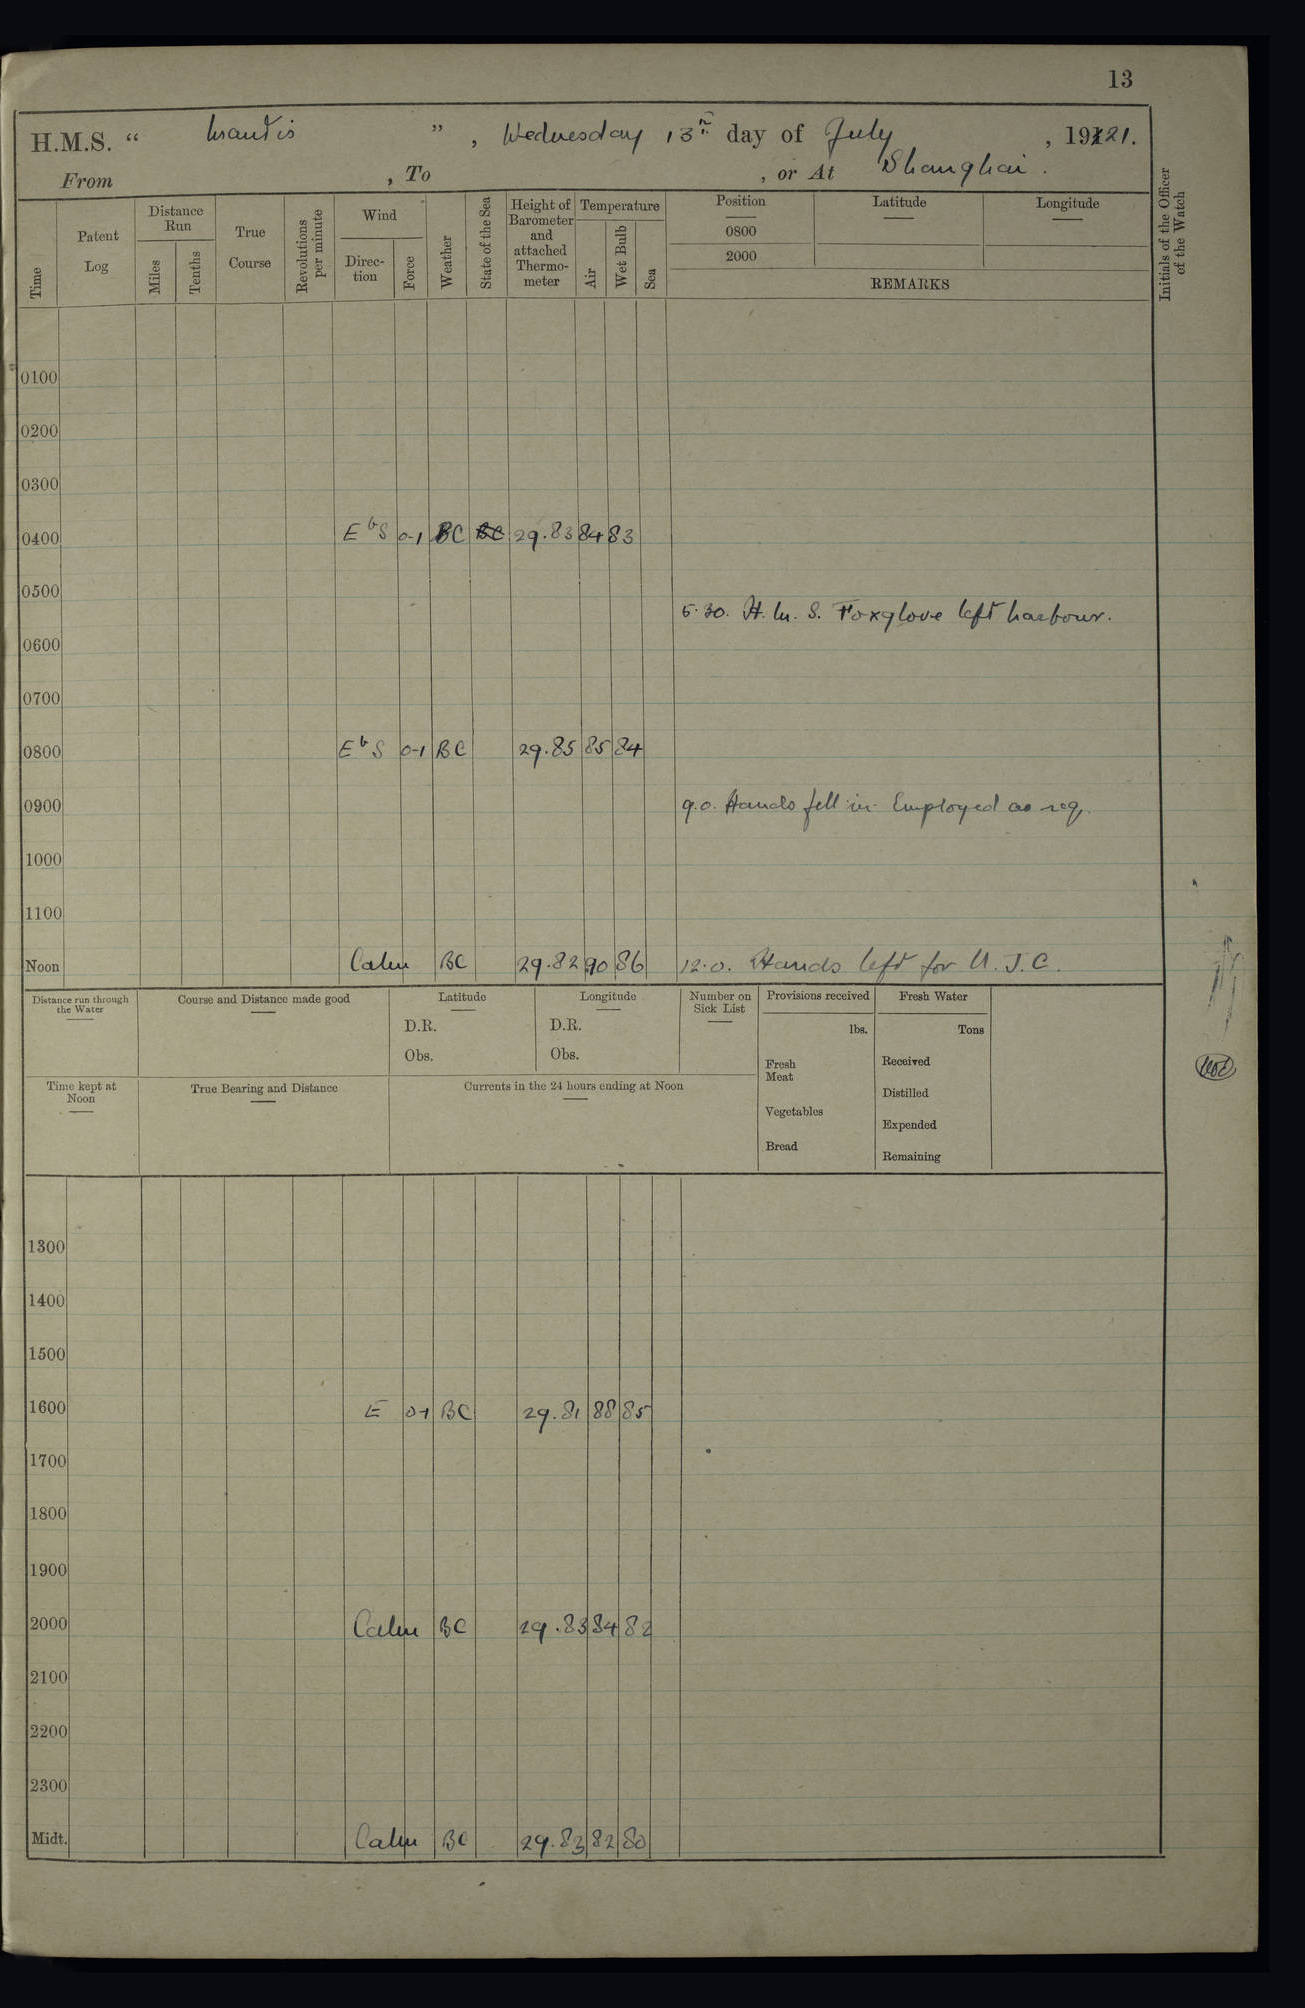 13
H.M.S. “ Mantis ” , Wednesday 13th day of July , 1921.
From , To , or At Shanghai .
Time
Patent Log
Distance Run
Miles
Tenths
True Course
Revolutions per minute
Wind
Direc- tion
Force
Weather
State of the Sea
Height of Barometer and attached Thermo- meter
Temperature
Air
Wet Bulb
Sea
Position
0800
2000
Latitude
Longitude
REMARKS
Initials of the Officer of the Watch
0100
0200
0300
0400 E b S 0-1 BC BC 29.83 84 83
0500
5.30. H.M.S. Foxglove left harbour.
0600
0700
0800 E b S 0-1 BC 29.85 85 84
0900 9.0. Hands fell in. Employed as req.
1000
1100
Noon Calm BC 29.82 90 86 12.0. Hands left for U.J.C.
Distance run through the Water
Course and Distance made good
Latitude
D.R.
Obs.
Longitude
D.R.
Obs.
Number on Sick List
Provisions received
lbs.
Fresh Meat
Vegetables
Bread
Fresh Water
Tons
Received
Distilled
Expended
Remaining
Time kept at Noon
True Bearing and Distance
Currents in the 24 hours ending at Noon
1300
1400
1500
1600 E 0-1 BC 29.81 88 85
1700
1800
1900
2000 Calm BC 29.83 84 82
2100
2200
2300
Midt. Calm BC 29.83 82 80